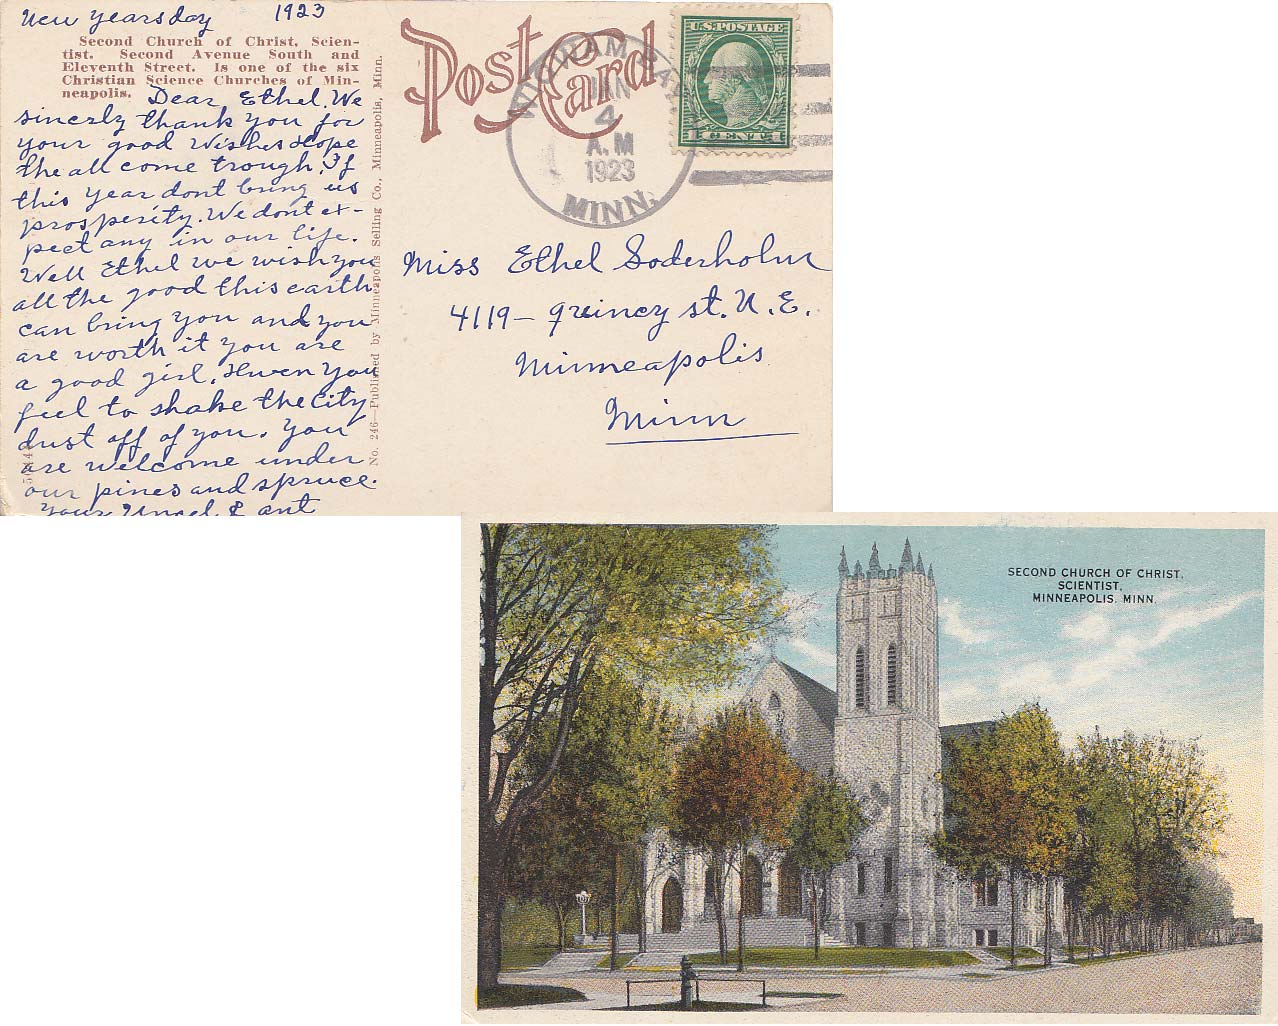 New years day 1923
Second Church of Christ, Scien-
tist. Second Avenue South and
Eleventh Street. Is one of the six
Christian Science Churches of Min-
neapolis.
Dear Ethel. We
sincerly thank you for
your good wishes Hope
the all come trough. If
this year dont bring us
prosperity. We dont ex-
pect any in our life.
Well Ethel we wish you
all the good this earth
can bring you and you
are worth it you are
a good girl. Hwen you
feel to shake the City
dust off of you. You
are welcome under
our pines and spruce.
Your Uncel & ant
No. 246—Published by Minneapolis Selling Co., Minneapolis, Minn.
Post Card
JAN
4
A.M
1923
MINN.
U.S. POSTAGE
1 CENT 1
Miss Ethel Soderholm
4119 – Quincy st. N. E.
Minneapolis
Minn
SECOND CHURCH OF CHRIST,
SCIENTIST,
MINNEAPOLIS, MINN.